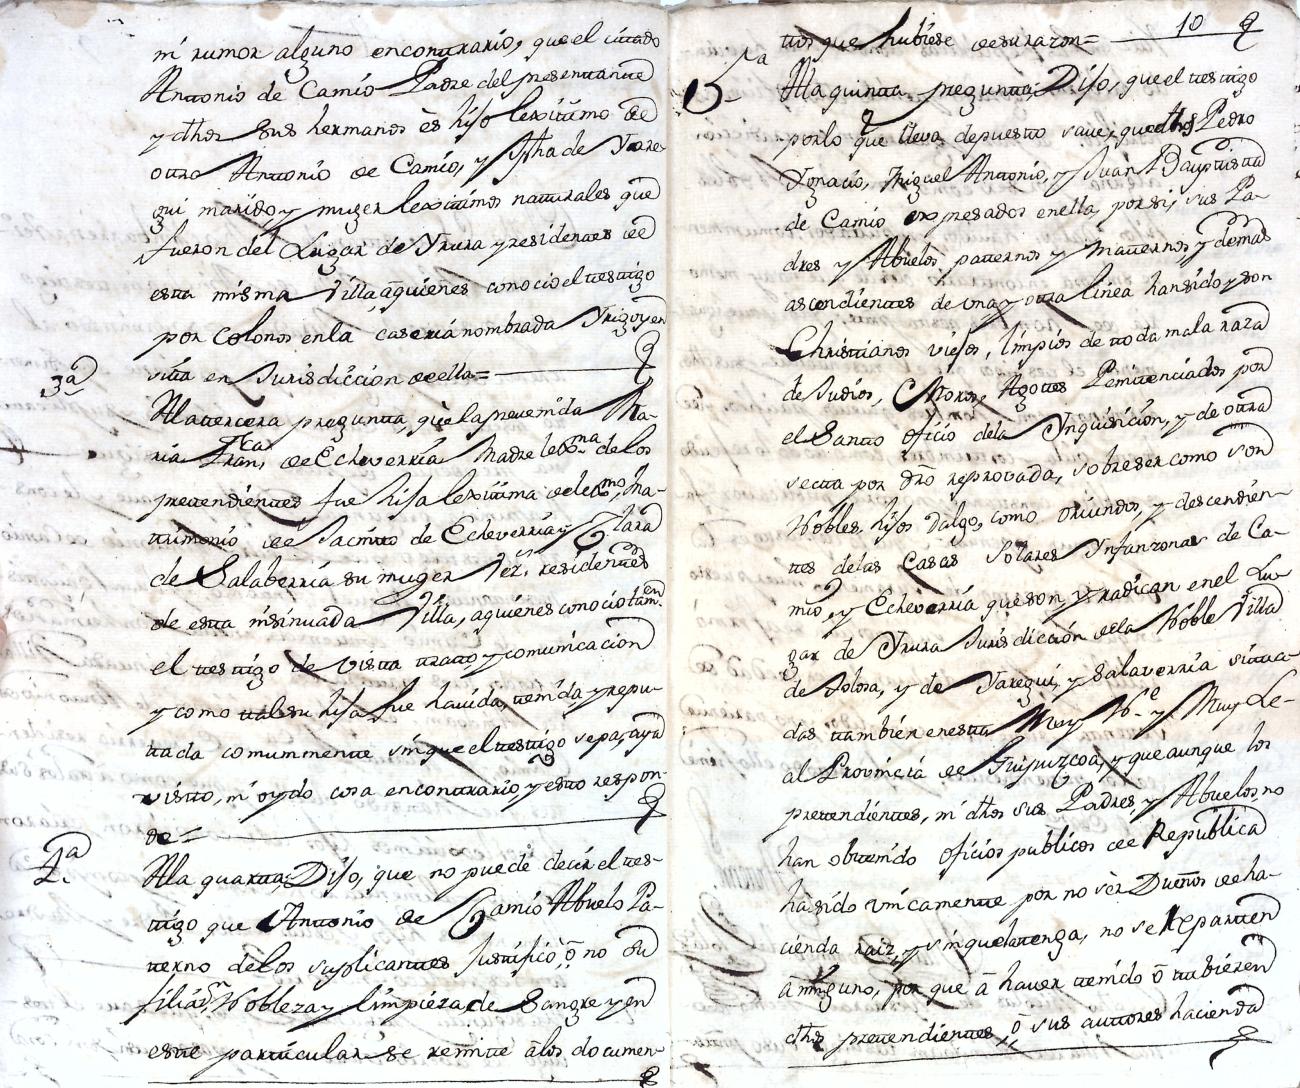 ni rumor alguno encontrario, que el citado
Antonio de Camio Padre del presentante
y dhos sus hermanos ès hijo lexitimo de
otro Antonio de Camio, y de Yarre-
gui marido, y muger lexitimos naturales que
fueron del Lugar de Yrura y residentes de
esta misma Villa, aquienes conocio el testigo
por colonos en la caseria nombrada Yrigoyen
sita en Jurisdiccion de ella=
3ª
Ala tercera pregunta, què la prevenida Ma-
ria Franca de Echeverria Madre lexma de los
pretendientes fue hija lexitima de lexmo Ma-
trimonio de Jacinto de Echeverria y Clara
de Salaberria su muger Vez.s residentes
de esta insinuada Villa, aquienes conocio tamen
el testigo de vista trato, y comunicacion
y como tal su hija fue havida, tenida, y repu-
tada comunmente sin que el testigo sepa, aya
visto, ni oydo cosa encontrario, y esto respon-
de=
4ª
Ala quarta, Dijo, que no puede decir el tes-
tigo que Antonio de Camio Abuelo Pa-
terno de los suplicantes Justificò, ò no su
filiaon, Nobleza y limpieza de Sangre y en
este particular se remite àlos documen-
10
tos que hubiese de su razon=
5ª
Ala quinta pregunta, Dijo, que el testigo
por lo que lleva depuesto save, que dhos Pedro
Ygnacio, Miguel Antonio, y Juan Bauptista
de Camio expresados en ella, por si, sus Pa-
dres y Abuelos paternos y maternos, y demas
ascendientes de una y otra linea han sido y son
Christianos viejos, limpios de toda mala raza
de Judios, Moros, Agotes Penitenciados por
el Santo oficio dela Ynquisicion, y de otra
secta por dro reprovada, sobreser como son
Nobles hijos dalgo, como oriundos, y descendien-
tes delas Casas Solares Ynfanzonas de Ca-
mio, y Echeverria que son, y radican en el Lu-
gar de Yrura Jurisdiccion dela Noble Villa
de Tolosa, y de Yaregui, y Salaverria situa-
das tambien en esta Muy Ne. y Muy Le-
al Provincia de Guipuzcoa, y que aunque los
pretendientes, ni dhos sus Padres, y Abuelos, no
han obtenido oficios publicos de Republica
hà sido unicamente por no sèr Dueños de ha-
cienda raiz, y sin que la tenga, no se reparten
à ninguno, por que à haver tenido ò tubieren
dhos pretendientes, ò sus autores hacienda